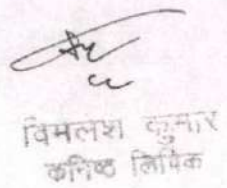 विमलेश कुमार
कनिष्ठ लिपिक